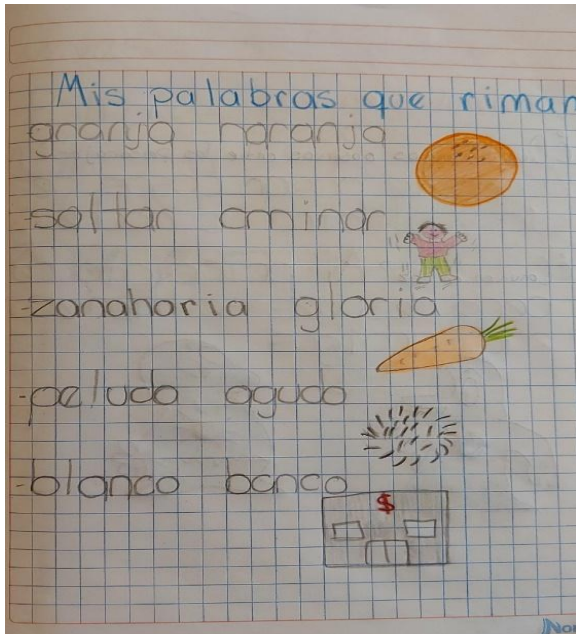 Mis palabras que riman
granja naranja
-saltar cminar
-zanahoria gloria
-peludo agudo
-blanco banco
$